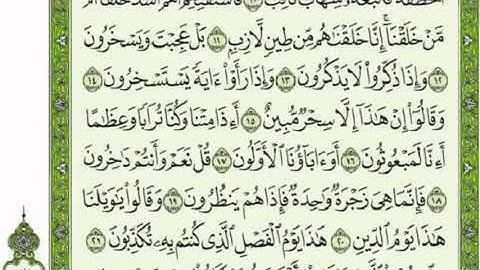 مَّنْ خَلَقْنَآ إِنَّا خَلَقْنَٰهُم مِّن طِينٍ لَّازِبٍ ١١ بَلْ عَجِبْتَ وَيَسْخَرُونَ
١٢ وَإِذَا ذُكِّرُوا۟ لَا يَذْكُرُونَ ١٣ وَإِذَا رَأَوْا۟ ءَايَةً يَسْتَسْخِرُونَ ١٤
وَقَالُوٓا۟ إِنْ هَٰذَآ إِلَّا سِحْرٌ مُّبِينٌ ١٥ أَءِذَا مِتْنَا وَكُنَّا تُرَابًا وَعِظَٰمًا
أَءِنَّا لَمَبْعُوثُونَ ١٦ أَوَءَابَآؤُنَا ٱلْأَوَّلُونَ ١٧ قُلْ نَعَمْ وَأَنتُمْ دَٰخِرُونَ
١٨ فَإِنَّمَا هِىَ زَجْرَةٌ وَٰحِدَةٌ فَإِذَا هُمْ يَنظُرُونَ ١٩ وَقَالُوا۟ يَٰوَيْلَنَا
هَٰذَا يَوْمُ ٱلدِّينِ ٢٠ هَٰذَا يَوْمُ ٱلْفَصْلِ ٱلَّذِى كُنتُم بِهِۦ تُكَذِّبُونَ ٢١